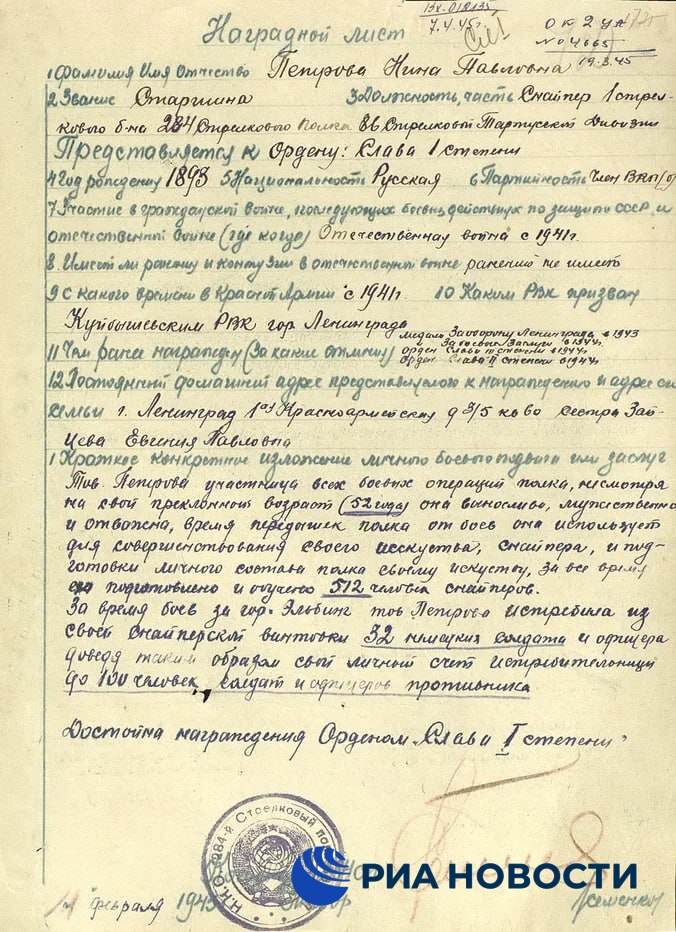 Вх. 018135
7.4.45г.
ОК 2 УА
№ 4665
19.3.45
Наградной лист
1 Фамилия Имя Отчество Петрова Нина Павловна
2 Звание Старшина 3 Должность, часть Снайпер 1 стрел-
кового б-на 284 Стрелкового полка 86 Стрелковой Тартусской Дивизии
Представляется к ордену: Слава I степени
4 Год рождения 1893 5 Национальность Русская 6 Партийность Член ВКП(б)
7 Участие в гражданской войне, последующих боевых действиях по защите СССР и
отечественной войне (где когда) Отечественная война с 1941г.
8. Имеет ли ранения и контузии в отечественной войне ранений не имеет
9 С какого времени в Красной Армии с 1941г. 10 Каким РВК призван
Куйбышевским РВК гор Ленинграда
медаль За оборону Ленинграда в 1943
За боевые Заслуги в 1944г.
11 Чем ранее награжден (За какие отличия) орден Слава III степени в 1944г.
орден Слава II степени в 1944г.
12 Постоянный домашний адрес представляемого к награждению и адрес его
семьи г. Ленинград 1ая Красноармейская д 3/5 кв 60 сестра Зай-
цева Евгения Павловна
1 Краткое конкретное изложение личного боевого подвига или заслуг
Тов. Петрова участница всех боевых операций полка, несмотря
на свой преклонный возраст (52 года) она вынослива, мужественна
и отважна, время передышек полка от боев она использует
для совершенствования своего исскуства, снайпера, и под-
готовки личного состава полка своему искуству, за все время
ею подготовлено и обучено 512 человек снайперов.
За время боев за гор. Эльбинг тов Петрова истребила из
своей снайперской винтовки 32 немецких солдата и офицера
доведя таким образом свой личный счет истребительницы
до 100 человек, солдат и офицеров противника
Достойна награждения Орденом „Слава I степени"
Н.К.О. 284-й Стрелковый
РИА НОВОСТИ
февраля 1945